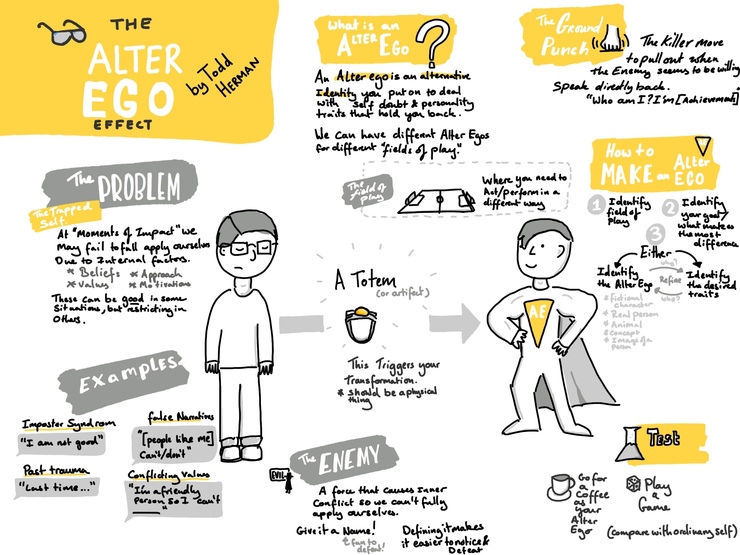 THE
ALTER
EGO
EFFECT
by Todd
HERMAN
What is an
ALTER EGO
?
An Alter ego is an alternative
Identity you put on to deal
with self doubt & personality
traits that hold you back.
We can have different Alter Egos
for different "fields of play."
The Ground
Punch
The Killer move
to pull out when
the Enemy seems to be willing
Speak directly back.
"Who am I? I'm [Achievement]"
The PROBLEM
The Trapped
Self
At "Moments of Impact" we
May fail to full apply ourselves
Due to Internal factors.
* Beliefs * Approach
* Values * Motivations
These can be good in some
Situations, but restricting in
Others.
The field of
play
Where you need to
Act/perform in a
different way
How to
MAKE an Alter
EGO
1 Identify
field of
play
2 Identify
your goal
what makes
the most
difference
3
Either
Identify
the Alter Ego
* fictional
character
* Real person
* Animal
* Concept
* Image of a
person
why?
Refine
who?
Identify
the desired
traits
A Totem
(or artifact)
This Triggers your
Transformation.
* Should be a physical
thing
AE
EXAMPLES
Imposter Syndrom
"I am not good"
false Narratives
"[people like me]
Can't/don't"
Past trauma
"Last time..."
Conflicting Values
"I'm a friendly
person so I can't
____"
EVIL
The ENEMY
A force that causes Inner
Conflict so we can't fully
apply ourselves.
Give it a Name!
fun to
defeat!
Defining it makes
it easier to notice &
Defeat
Test
Go for
a
Coffee
as your
Alter
Ego
Play
a
Game
(compare with ordinary self)